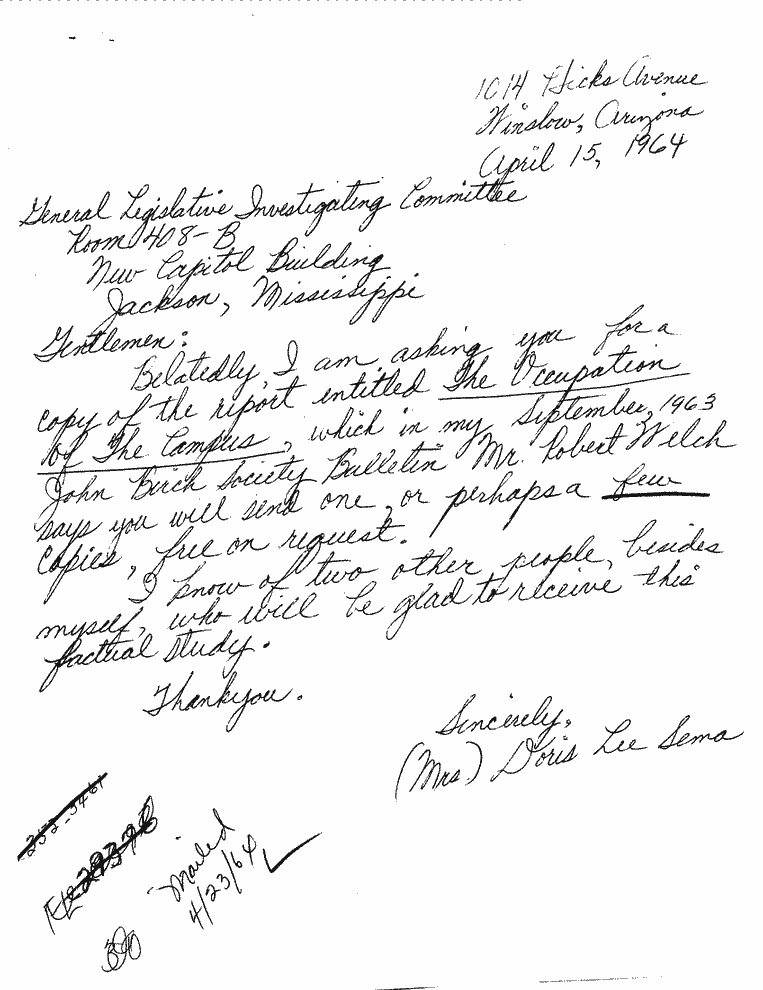 1014 Hicks Avenue
Winslow, Arizona
April 15, 1964
General Legislative Investigating Committee
Room 408-B
New Capitol Building
Jackson, Mississippi
Gentlemen:
Belatedly, I am asking you for a
copy of the report entitled The Occupation
of The Campus, which in my September, 1963
John Birch Society Bulletin Mr. Robert Welch
says you will send one, or perhaps a few
copies, free on request.
I know of two other people, besides
myself, who will be glad to receive this
factual study.
Thank you.
Sincerely,
(Mrs.) Doris Lee Sema
352-3461
Mailed
4/23/64